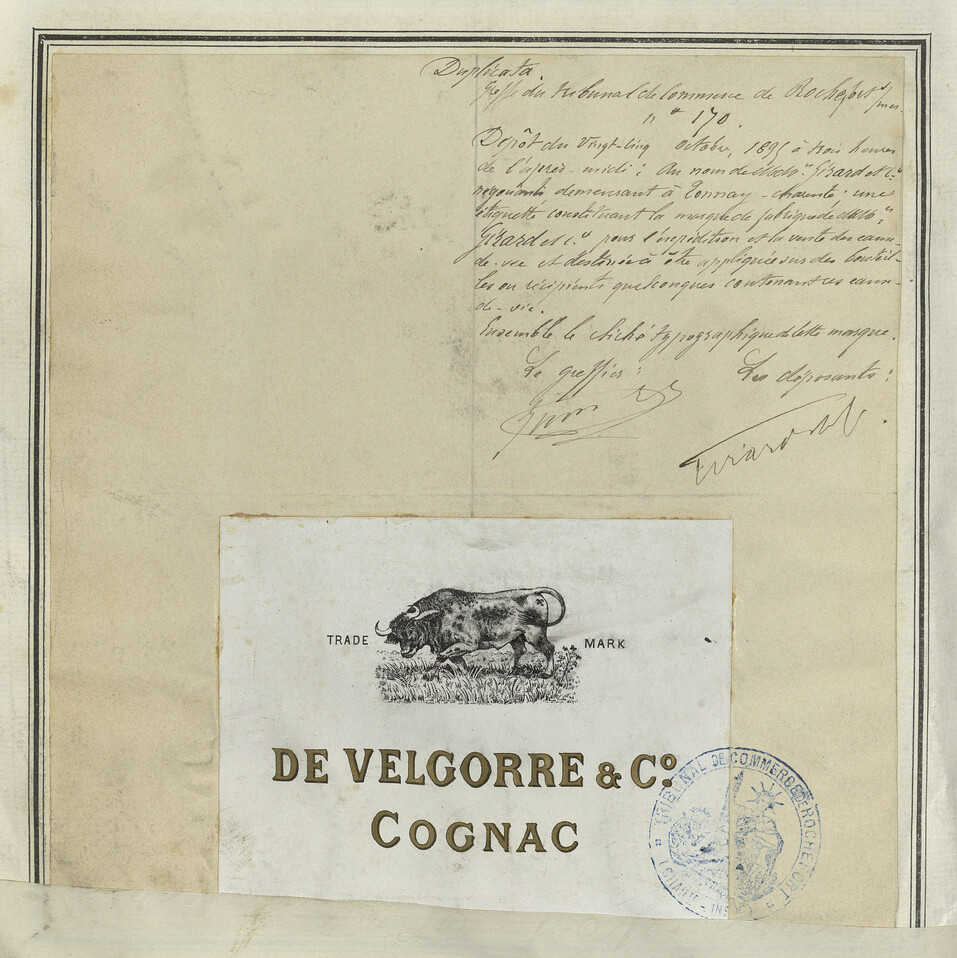 Duplicata.
Greffe du tribunal de Commerce de Rochefort s/mer
n° 170.
Dépôt du Vingt-Cinq Octobre, 1895 à trois heures
de l'après-midi; Au nom de Girard et Cie
négociants demeurant à Tonnay-Charente; une
étiquette constituant la marque de fabrique de
Girard et Cie pour l'expédition et la vente des eaux-
de-vie et destinée à être appliquée sur des bouteil-
les ou récipients quelconques contenant ces eaux-
de-vie.
Ensemble le cliché typographique de cette marque.
Le greffier: Les déposants:
Girard et Cie
TRADE MARK
DE VELGORRE & Cº
COGNAC
TRIBUNAL DE COMMERCE DE ROCHEFORT
(CHARTE-INF